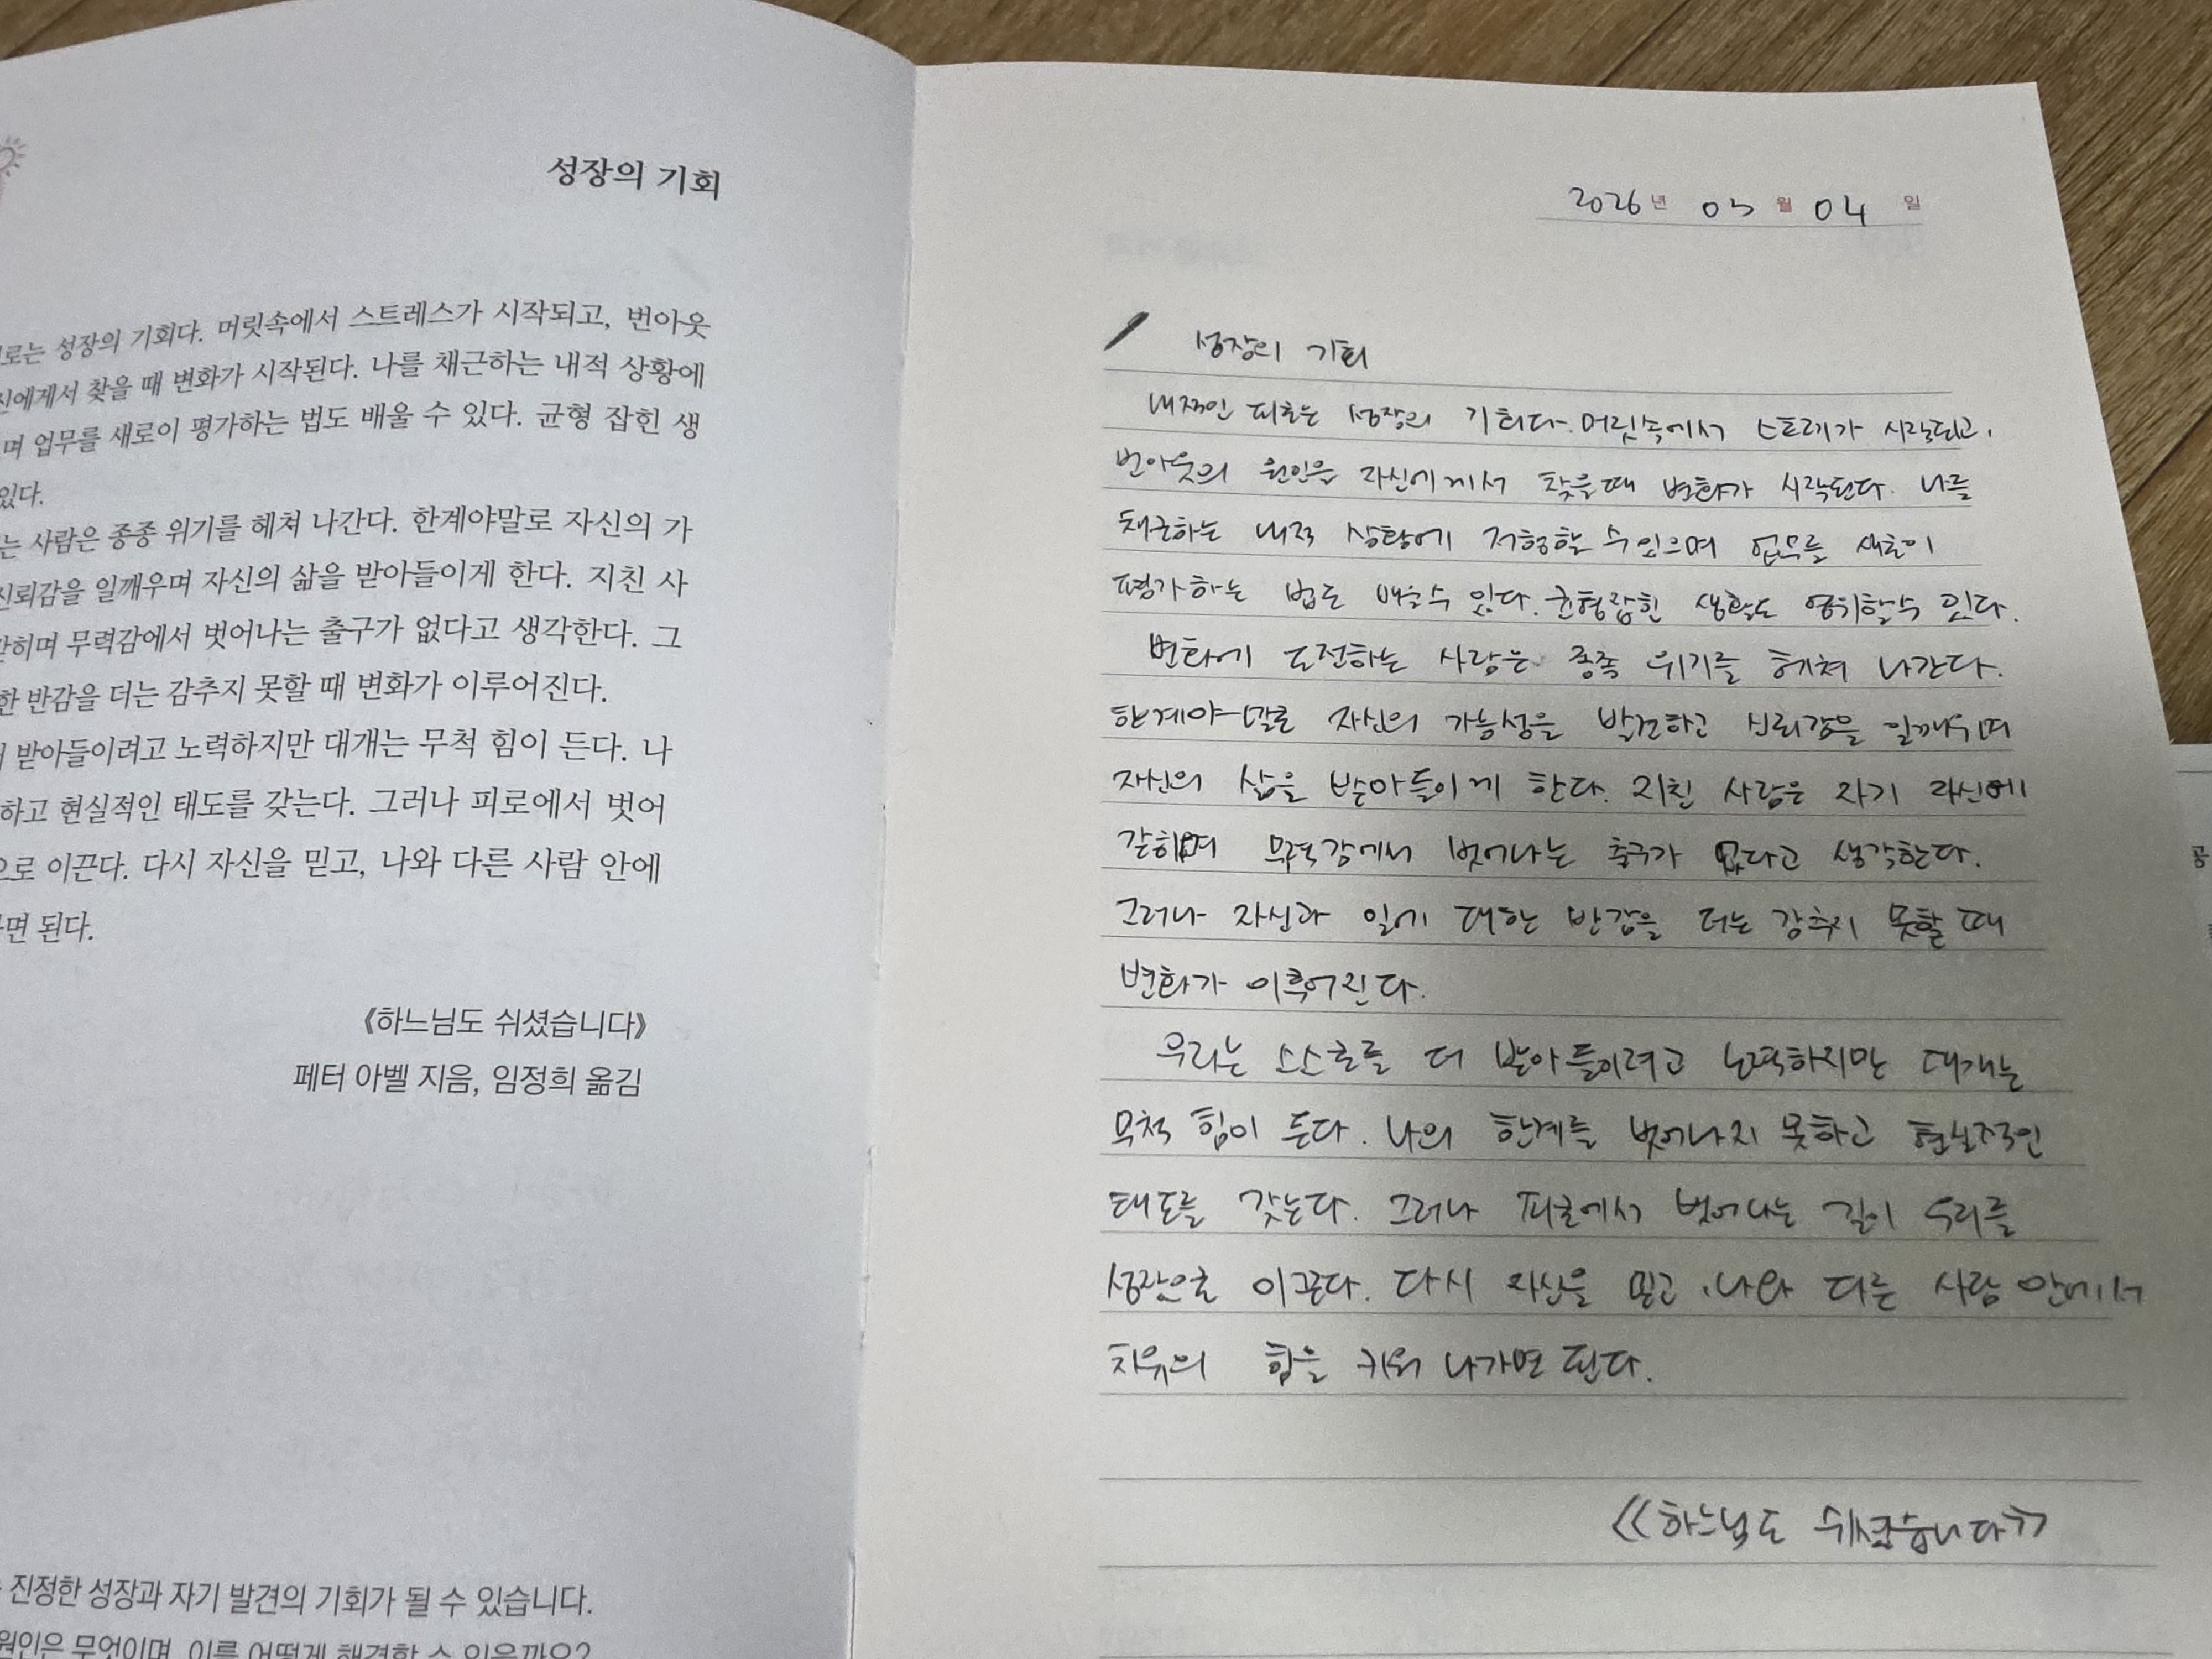 성장의 기회
로는 성장의 기회다. 머릿속에서 스트레스가 시작되고, 번아웃
신에게서 찾을 때 변화가 시작된다. 나를 채근하는 내적 상황에
며 업무를 새로이 평가하는 법도 배울 수 있다. 균형 잡힌 생
있다.
는 사람은 종종 위기를 헤쳐 나간다. 한계야말로 자신의 가
신뢰감을 일깨우며 자신의 삶을 받아들이게 한다. 지친 사
갇히며 무력감에서 벗어나는 출구가 없다고 생각한다. 그
한 반감을 더는 감추지 못할 때 변화가 이루어진다.
받아들이려고 노력하지만 대개는 무척 힘이 든다. 나
하고 현실적인 태도를 갖는다. 그러나 피로에서 벗어
으로 이끈다. 다시 자신을 믿고, 나와 다른 사람 안에
면 된다.
《하느님도 쉬셨습니다》
페터 아벨 지음, 임정희 옮김
진정한 성장과 자기 발견의 기회가 될 수 있습니다.
원인은 무엇이며, 이를 어떻게 해결할 수 있을까요?
2026년 05월 04일
성장의 기회
내적인 피로는 성장의 기회다. 머릿속에서 스트레가 시작되고,
번아웃의 원인을 자신에게서 찾을때 변화가 시작된다. 나를
채근하는 내적 상황에 저항할 수 있으며 업무를 새로이
평가하는 법도 배울수 있다. 균형잡힌 생활도 영위할수 있다.
변화에 도전하는 사람은 종종 위기를 헤쳐 나간다.
한계야말로 자신의 가능성을 발견하고 신뢰감을 일깨우며
자신의 삶을 받아들이게 한다. 지친 사람은 자기 자신에
갇히며 무력감에서 벗어나는 출구가 없다고 생각한다.
그러나 자신과 일에 대한 반감을 더는 감추지 못할 때
변화가 이루어진다.
우리는 스스로를 더 받아들이려고 노력하지만 대개는
무척 힘이 든다. 나의 한계를 벗어나지 못하고 현실적인
태도를 갖는다. 그러나 피로에서 벗어나는 길이 우리를
성장으로 이끈다. 다시 자신을 믿고, 나와 다른 사람 안에서
치유의 힘을 키워 나가면 된다.
《하느님도 쉬셨습니다》